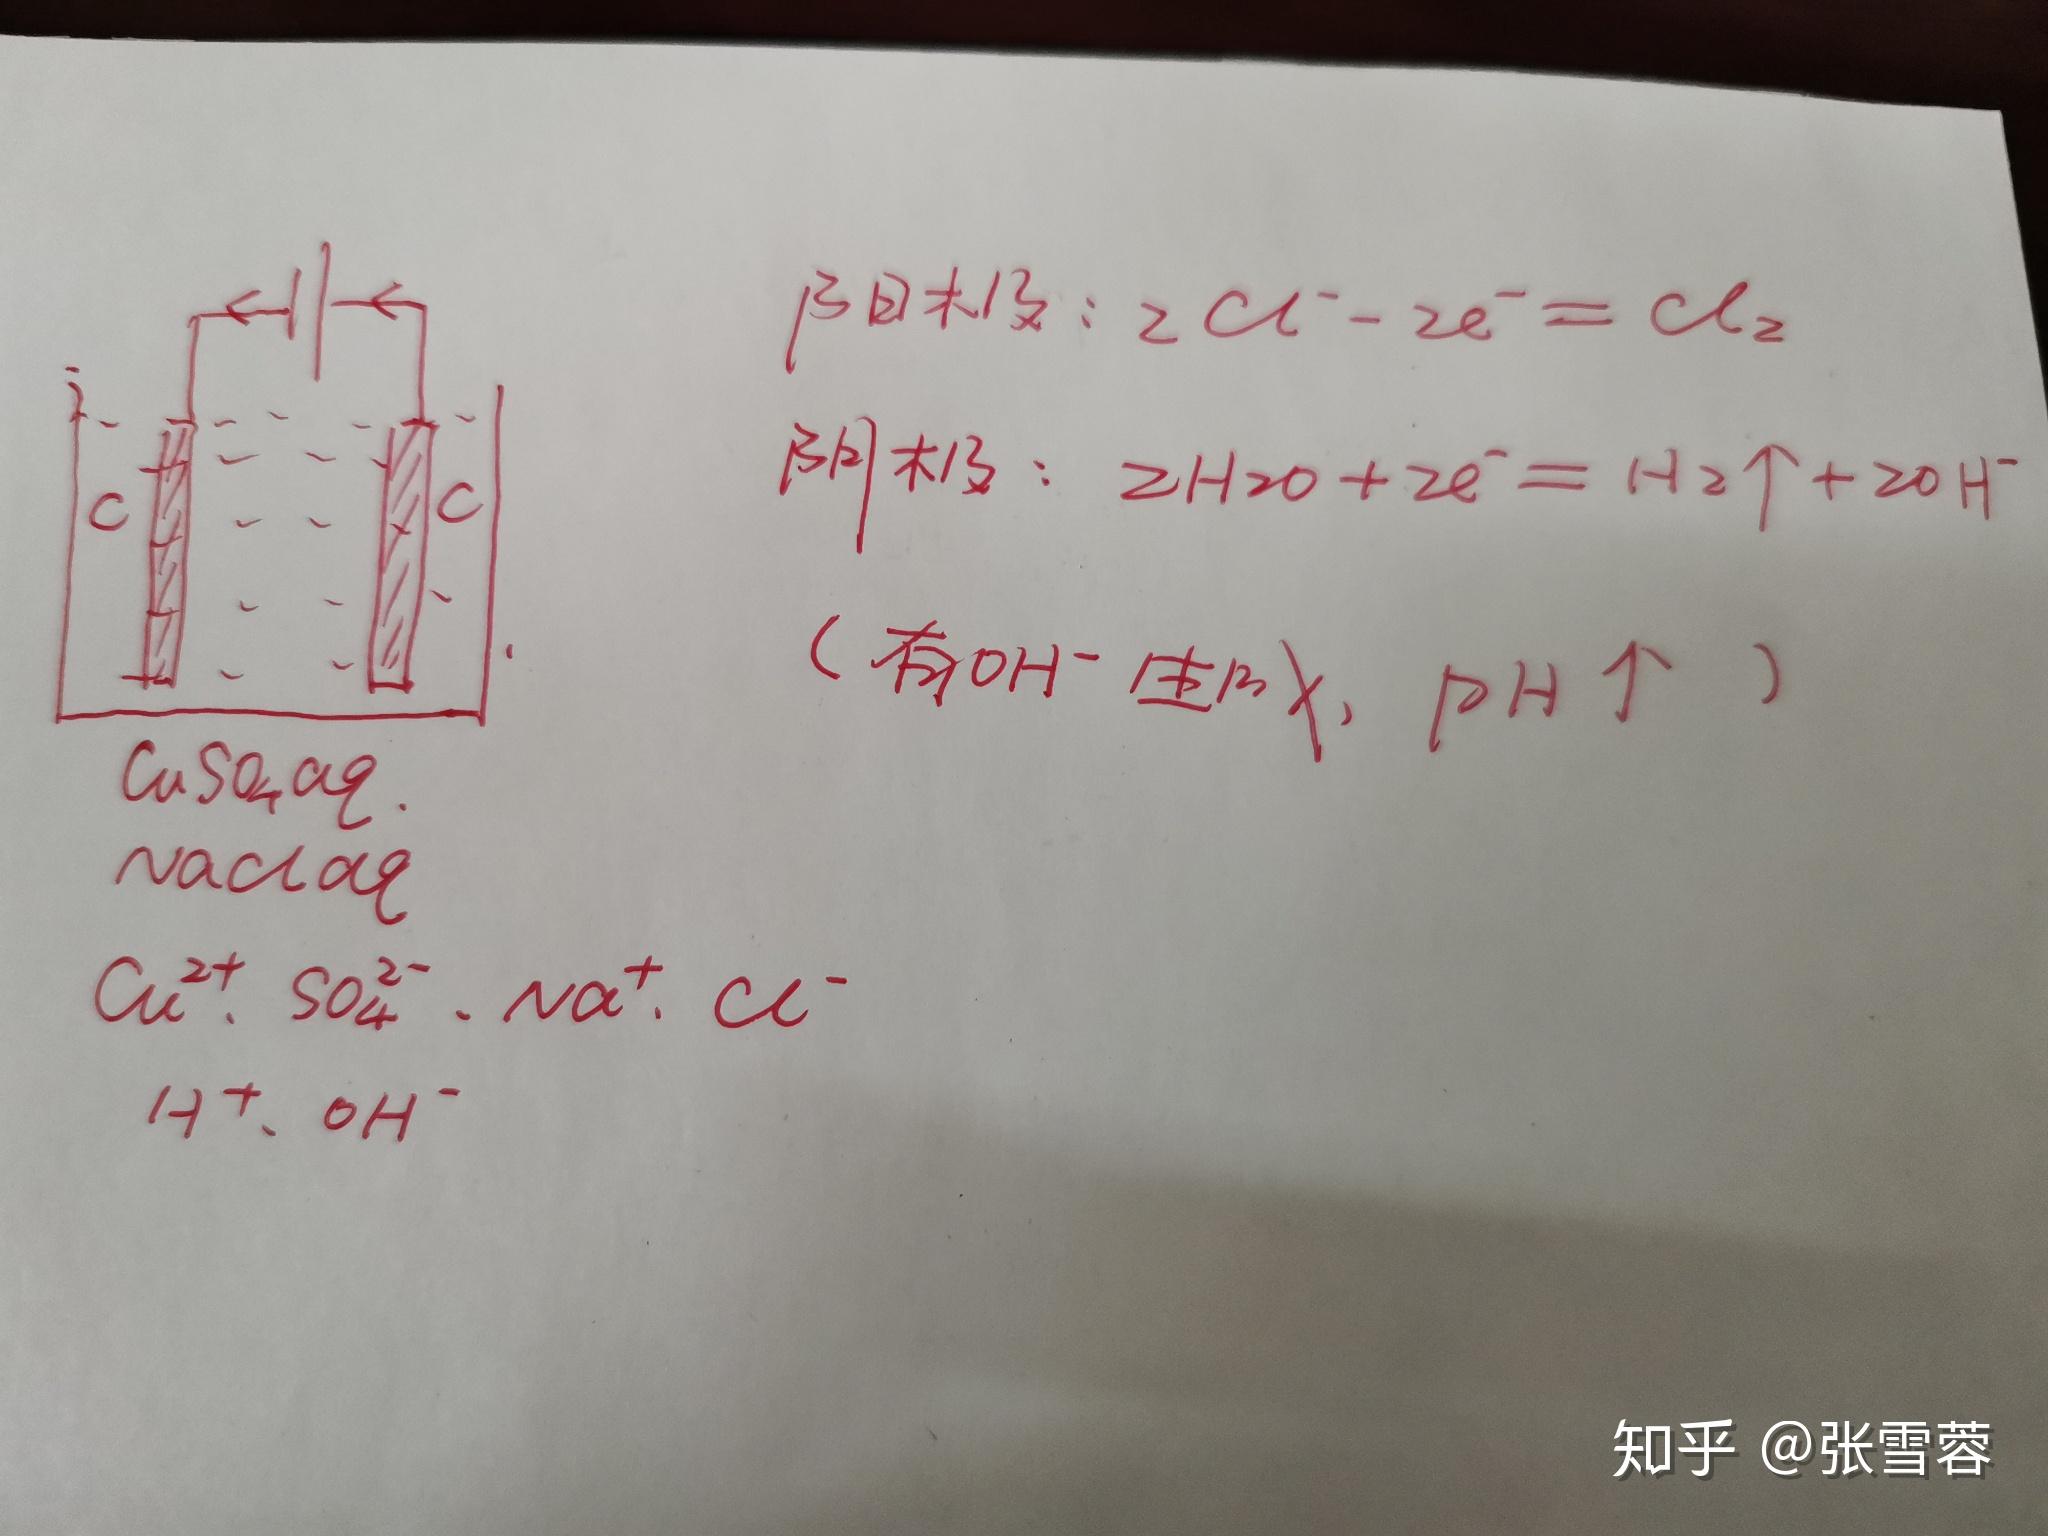 阳极：2Cl⁻-2e⁻=Cl₂
阴极：2H₂O+2e⁻=H₂↑+2OH⁻
（有OH⁻生成，pH↑）
C
C
CuSO₄aq.
NaClaq
Cu²⁺、SO₄²⁻、Na⁺、Cl⁻
H⁺、OH⁻
知乎 @张雪蓉